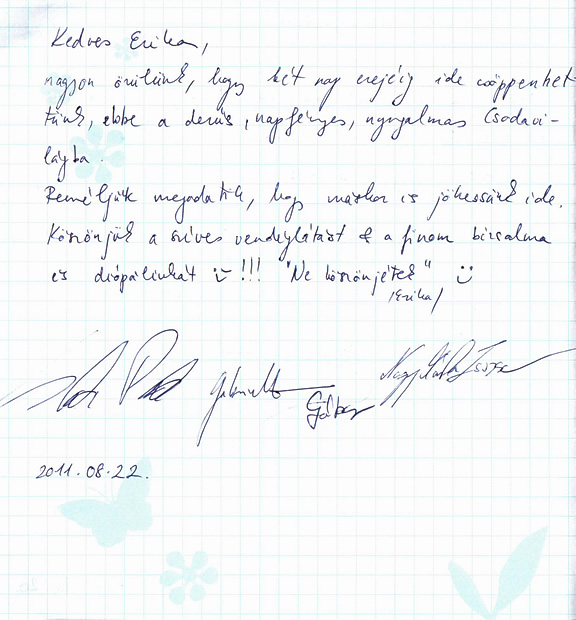 Kedves Erika,
nagyon örülünk, hogy két nap erejéig ide csöppenhet-
tünk, ebbe a derűs, napfényes, nyugalmas Csodavi-
lágba.
Reméljük megadatik, hogy máskor is jöhessünk ide.
Köszönjük a szíves vendéglátást & a finom birsalma
és diópálinkát !!! "Ne köszönjétek"
/Erika/
Gábor
2011.08.22.